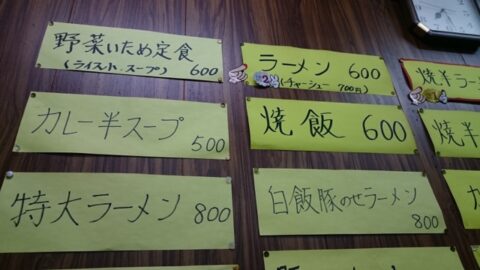 野菜いため定食
(ライス小、スープ) 600
カレー半スープ
500
特大ラーメン 800
ラーメン 600
(チャーシュー 700円)
焼飯 600
白飯豚のせラーメン
800
焼半ラー
焼半
カ